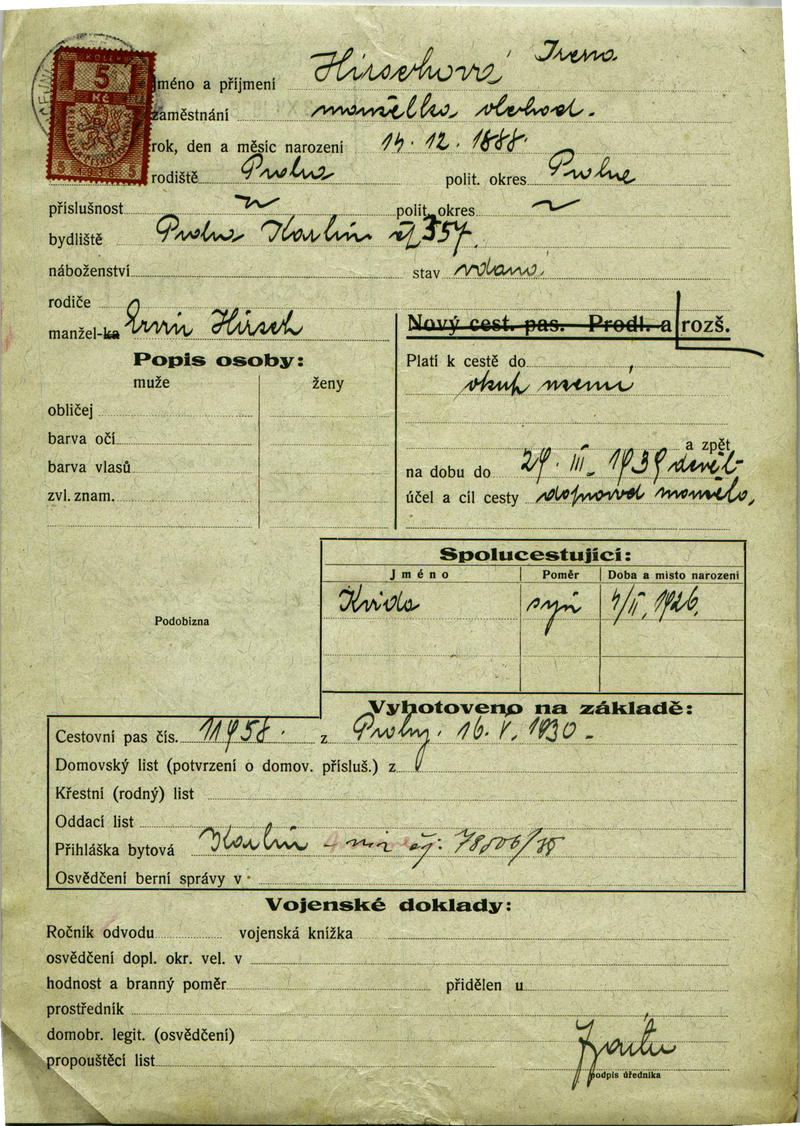 KOLEK
5
Kč
5 1938 5
jméno a příjmení Hirschová Irena
zaměstnání manželka obchod.
rok, den a měsíc narození 14. 12. 1888.
rodiště Praha polit. okres Praha
příslušnost " polit. okres "
bydliště Praha Karlín čj 357.
náboženství stav vdaná
rodiče
manžel-ka Ervín Hirsch
Nový cest. pas. Prodl. a rozš.
Popis osoby:
muže ženy
obličej
barva očí
barva vlasů
zvl. znam.
Platí k cestě do
a zpět
na dobu do 29. III. 1939
účel a cíl cesty doprovod
Podobizna
Spolucestující:
Jméno Poměr Doba a místo narození
Kvido syn /II. 1926.
Vyhotoveno na základě:
Cestovní pas čís. 11958. z Prahy. 16. V. 1930 -
Domovský list (potvrzení o domov. přísluš.) z
Křestní (rodný) list
Oddací list
Přihláška bytová Karlín čj: /38
Osvědčení berní správy v
Vojenské doklady:
Ročník odvodu vojenská knížka
osvědčení dopl. okr. vel. v
hodnost a branný poměr přidělen u
prostředník
domobr. legit. (osvědčení)
propouštěcí list
podpis úředníka